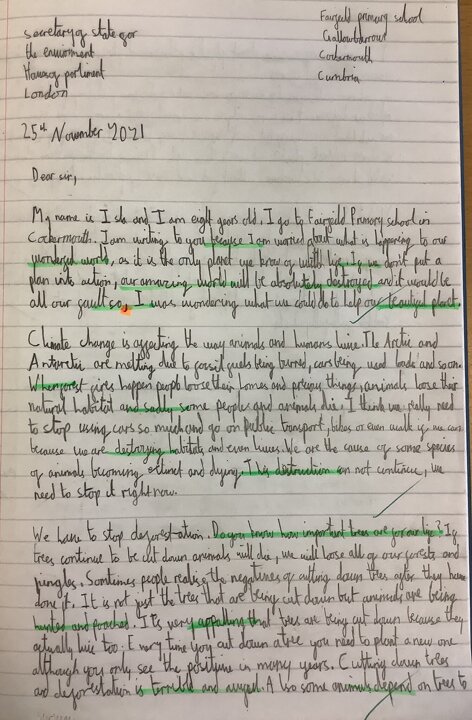 Fairfield primary school
Gallowbarrow
Cockermouth
Cumbria
secretary of state for
the enviorment
Houses of parliment
London
25th November 2021
Dear sir,
My name is Isla and I am eight years old. I go to Fairfield Primary school in
Cockermouth. I am writing to you because I am worried about what is happening to our
wonderful world, as it is the only planet we know of with life. If we don't put a
plan into action, our amazing world will be absolutely destroyed and it would be
all our fault so, I was wondering what we could do to help our beautiful planet.
Climate change is affecting the way animals and humans live. The Arctic and
Antarctic are melting due to fossil fuels being burned, cars being used loads and so on.
When forest fires happen people loose their homes and precious things, animals loose their
natural habitat and sadly some people and animals die. I think we really need
to stop using cars so much and go on public transport, bikes or even walk if we can
because we are destroying habitats and even lives. We are the cause of some species
of animals becoming extinct and dying. This distruction can not continue, we
need to stop it right now.
We have to stop deforestation. Do you know how important trees are for our life? If
trees continue to be cut down animals will die, we will loose all of our forests and
jungles. Sometimes people realise the negatives of cutting down trees after they have
done it. It is not just the trees that are being cut down but animals are being
hunted and poached. It's very appalling that trees are being cut down because they
actually live too. Every time you cut down a tree you need to plant a new one
although you only see the positive in many years. Cutting down trees
and deforestation is terrible and awful. Also some animals depend on trees to